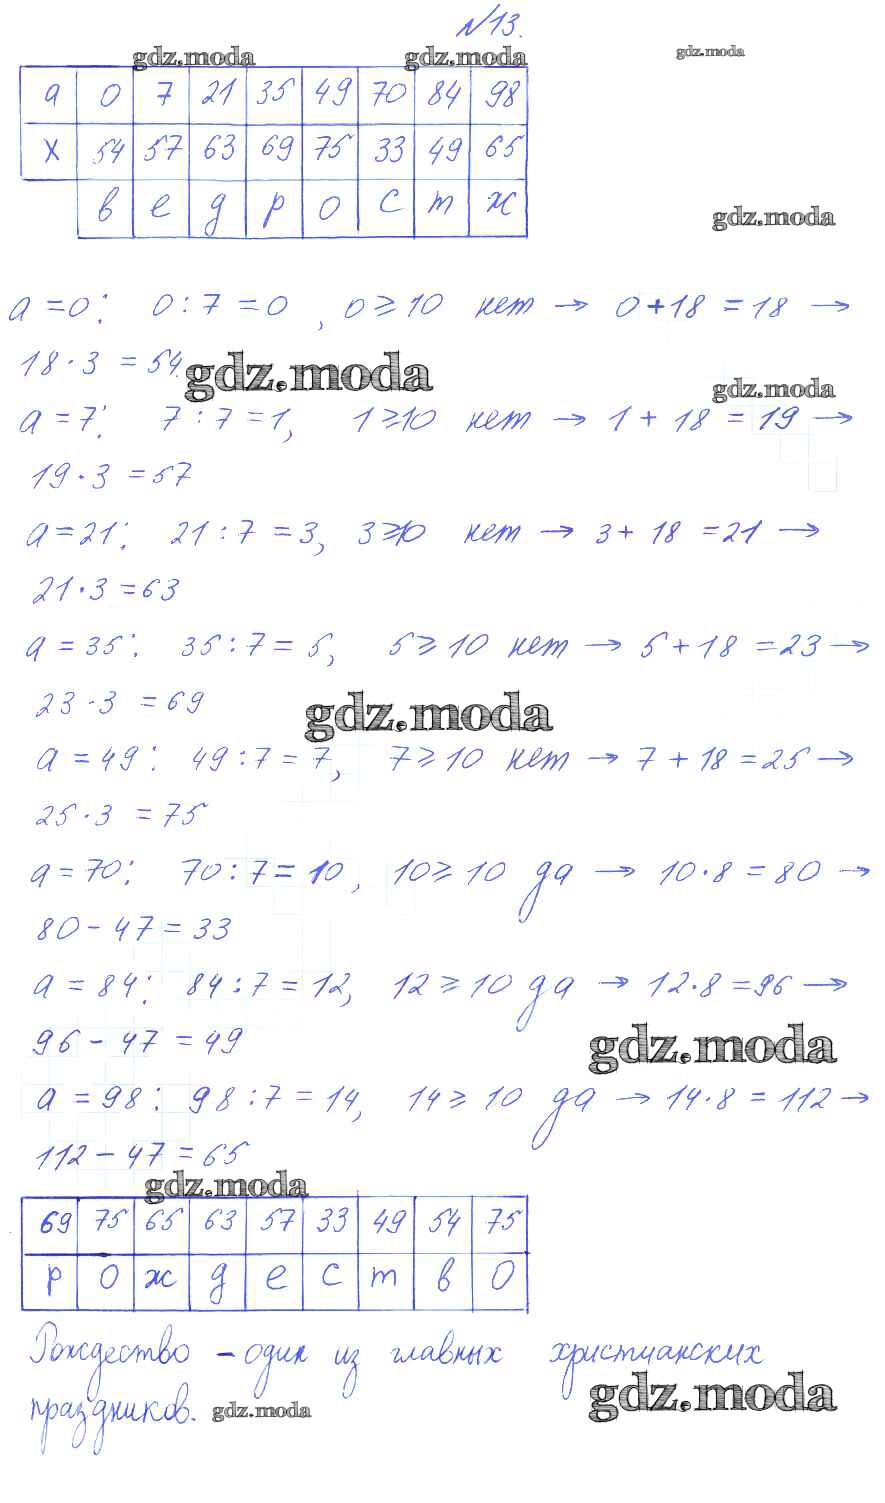 №13.
gdz.moda gdz.moda gdz.moda
a 0 7 21 35 49 70 84 98
x 54 57 63 69 75 33 49 65
в е д р о с т ж
gdz.moda
a = 0: 0 : 7 = 0, 0 ⩾ 10 нет → 0 + 18 = 18 →
18 · 3 = 54.
gdz.moda gdz.moda
a = 7: 7 : 7 = 1, 1 ⩾ 10 нет → 1 + 18 = 19 →
19 · 3 = 57
a = 21: 21 : 7 = 3, 3 ⩾ 10 нет → 3 + 18 = 21 →
21 · 3 = 63
a = 35: 35 : 7 = 5, 5 ⩾ 10 нет → 5 + 18 = 23 →
23 · 3 = 69
gdz.moda
a = 49: 49 : 7 = 7, 7 ⩾ 10 нет → 7 + 18 = 25 →
25 · 3 = 75
a = 70: 70 : 7 = 10, 10 ⩾ 10 да → 10 · 8 = 80 →
80 - 47 = 33
a = 84: 84 : 7 = 12, 12 ⩾ 10 да → 12 · 8 = 96 →
96 - 47 = 49
gdz.moda
a = 98: 98 : 7 = 14, 14 ⩾ 10 да → 14 · 8 = 112 →
112 - 47 = 65
gdz.moda
69 75 65 63 57 33 49 54 75
р о ж д е с т в о
Рождество - один из главных христианских
праздников.
gdz.moda gdz.moda